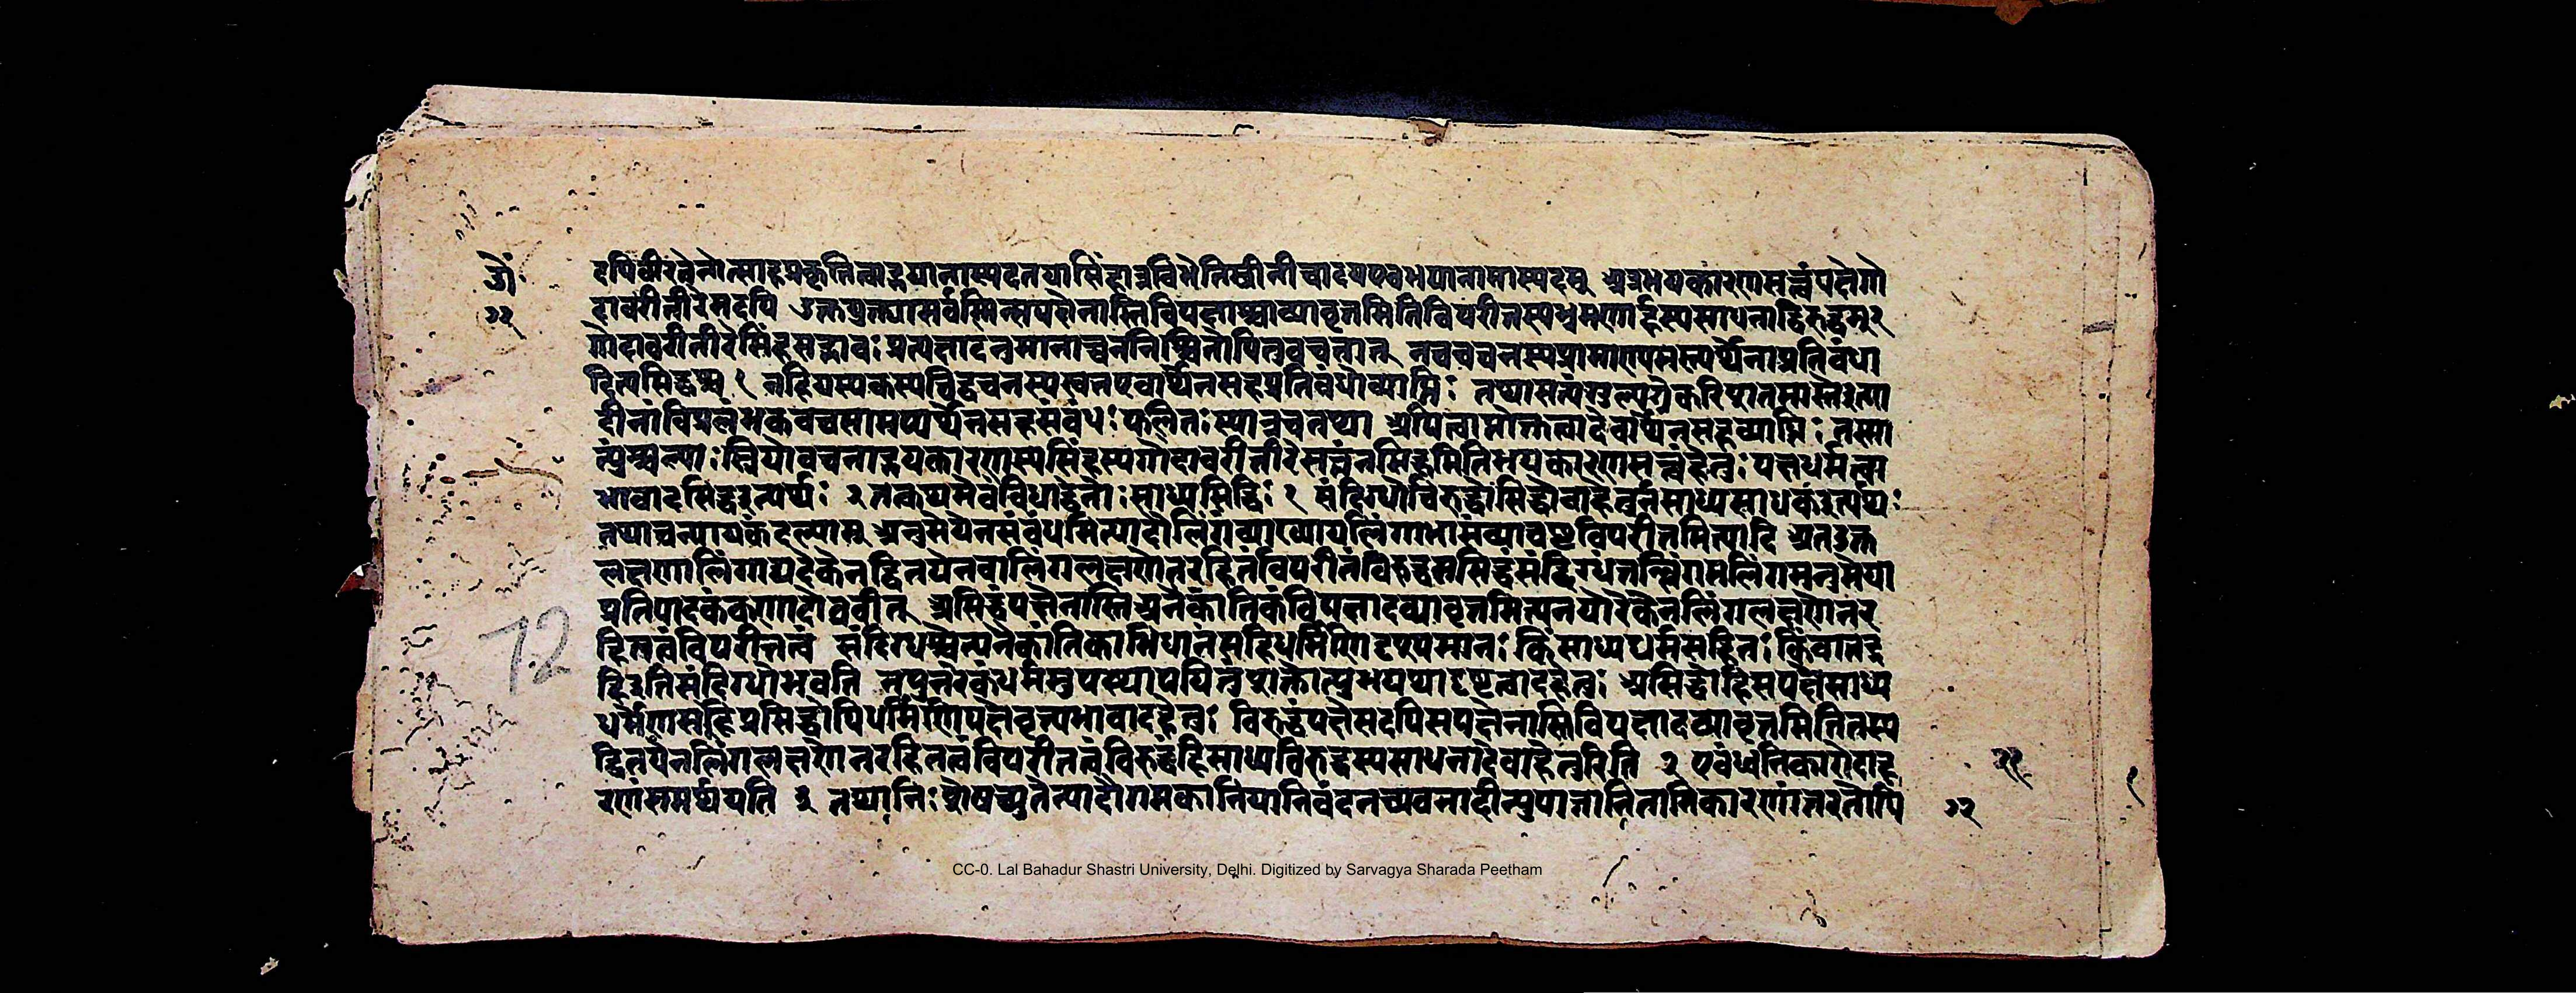 दपिवीरत्वेनोत्साहप्रकृतित्वाद्भयानास्पदतयासिंहान्नविभेतिस्त्रीनीचादयएवभयानामास्पदम् अत्रभयकारणसत्त्वंपक्षेगो
दावरीतीरेसदपि उक्तयुक्त्यासर्वस्मिन्सपक्षेनास्तिविपक्षाच्चाव्यावृत्तमितिविपरीतस्यभ्रमणार्हस्यसाधनाद्विरुद्धम् २
गोदावरीतीरेसिंहसद्भावः प्रत्यक्षादनुमानाच्चननिश्चितोपितुवचनात् नचवचनस्यप्रामाण्यमस्त्यर्थेनाप्रतिबंधा
दित्यसिद्धश्च १ नहियस्यकस्यचिद्वचनस्य एवार्थेनसहप्रतिबंधोव्याप्तिः तथासत्यंगुल्यग्रेकरियूथशतमास्तइत्या
दीनांविप्रलंभकवचसामप्यर्थेनसहसंबंधः फलितः स्यान्नचतत्तथा अपित्वाप्तोक्तत्वादेवार्थेनसहव्याप्तिः तस्मा
त्पुंश्चल्याः स्त्रियोवचनाद्भयकारणस्यसिंहस्यगोदावरीतीरेसत्त्वंनसिद्धमितिभयकारणसत्त्वंहेतुः पक्षधर्मत्वा
भावादसिद्धइत्यर्थः २ तत्कथमेवंविधाद्धेतोः साध्यसिद्धिः १ संदिग्धोविरुद्धोसिद्धोवाहेतुर्नसाध्यसाधकइत्यर्थः
तथाचन्यायकंदल्याम् अनुमेयेनसंबंधमित्यादौलिंगंव्याख्यायलिंगाभासंव्याचष्टेविपरीतमित्यादि अतउक्त
लक्षणाल्लिंगाद्यदेकेनद्वितयेनवालिंगलक्षणेनरहितंविपरीतंविरुद्धमसिद्धंसंदिग्धंतल्लिंगमलिंगमनुमेया
प्रतिपादकंकणादोब्रवीत् असिद्धंपक्षेनास्तिअनैकांतिकंविपक्षादव्यावृत्तमित्यनयोरेकेनलिंगलक्षणेनर
हितत्वंविपरीतत्वं संदिग्धश्चेत्यनैकांतिकाभिधानंसहिधर्मिणिदृश्यमानः किंसाध्यधर्मसहितः किंवातद्र
हितइतिसंदिग्धोभवति नपुनरेकंधर्ममुपस्थापयितुंशक्तोत्युभयथादृष्टत्वादहेतुः असिद्धोहिसपक्षेसाध्य
धर्मेणसहप्रसिद्धोपिधर्मिणिपक्षेवृत्त्यभावादहेतुः विरुद्धंपक्षेसदपिसपक्षेनास्तिविपक्षादव्यावृत्तमितितस्य
द्वितयेनलिंगलक्षणेनरहितत्वंविपरीतत्वंविरुद्धंहिसाध्यविरुद्धस्यसाधनादेवाहेतुरिति २ एवंध्वनिकारोदाह
रणंसमर्थयति ३ तथानिः शेषच्युतेत्यादौगमकानियानिचंदनच्यवनादीन्युपात्तानितानिकारणांतरतोपि
७२
72
CC-0. Lal Bahadur Shastri University, Delhi. Digitized by Sarvagya Sharada Peetham